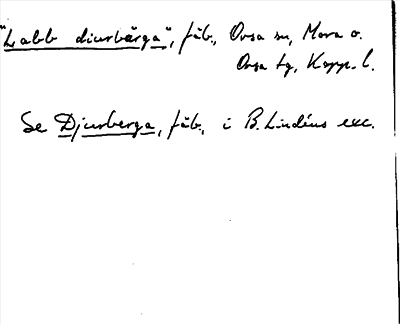 "Labb diurbärga", fäb., Orsa sn, Mora o.
Orsa tg, Kopp. l.
Se Djurberga, fäb., i B. Lindéns exc.